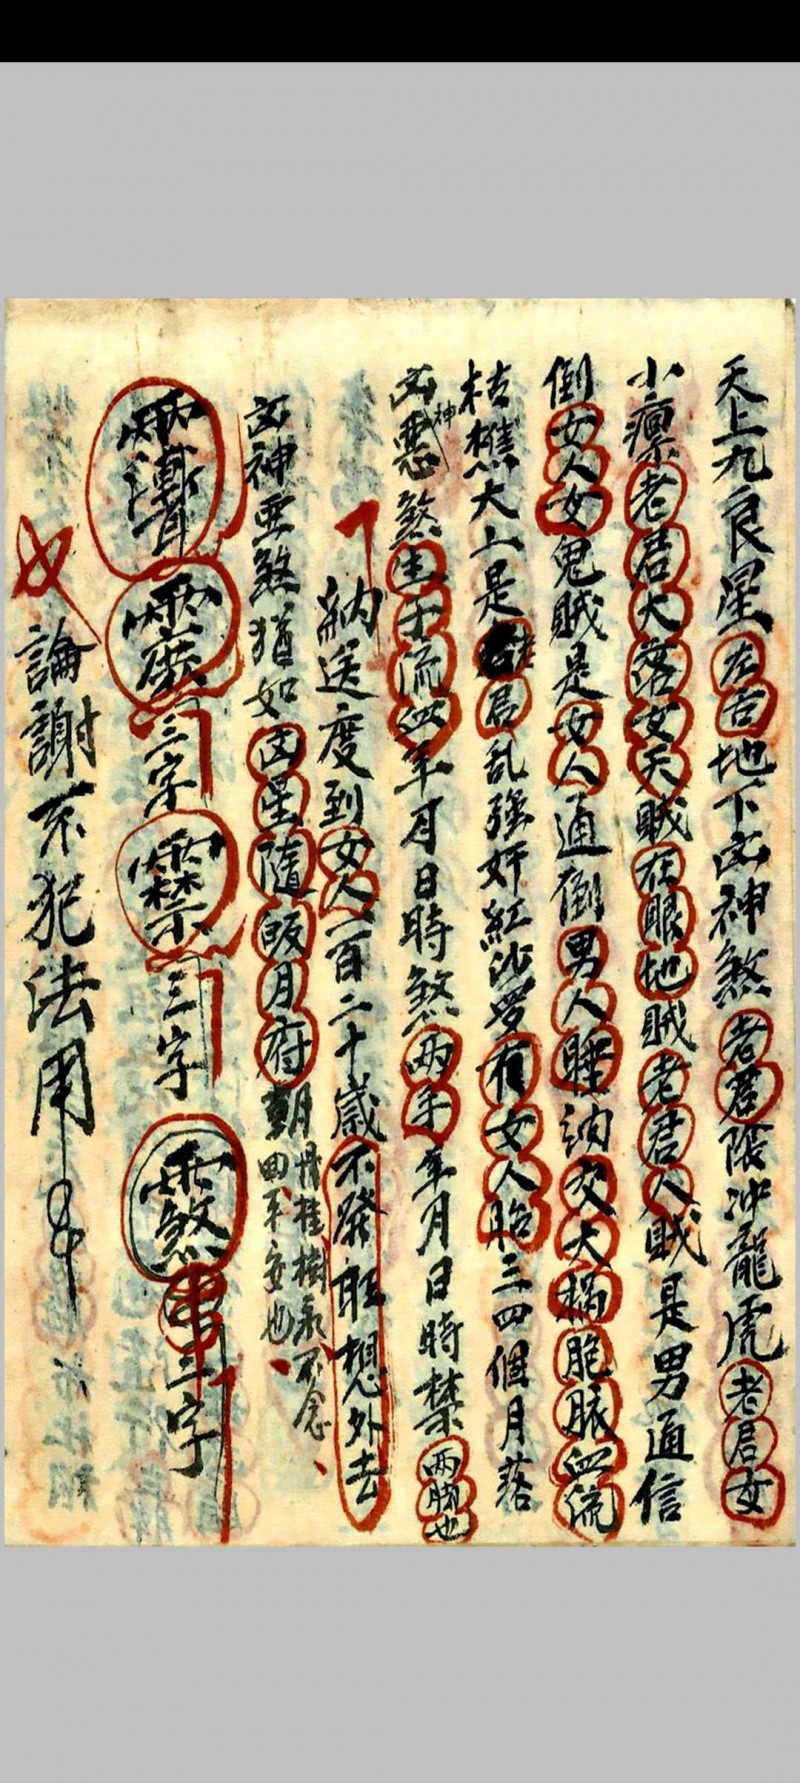 天上九良星左右地下凶神煞老君限沖龍虎老君女
小癝老君大落女天賊在眼地賊老君人賊是男通信
倒女人女鬼賊是女人通倒男人睡納交大禍胞脈血流
枯樵大上是君乱強奸紅沙罗有女人胎三四個月落
凶神惡煞生子流血年月日時煞两手年月日時禁两脚也
納送度到女人一百二十歲不發旺想外去
丹桂樹永不念
凶神亜煞猶如凶星隨皈月府朝
回平安也
三字 三字 三字
論謝不犯法用